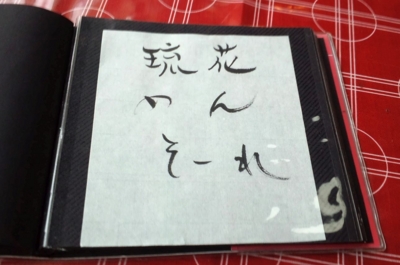 琉花
めん
そーれ